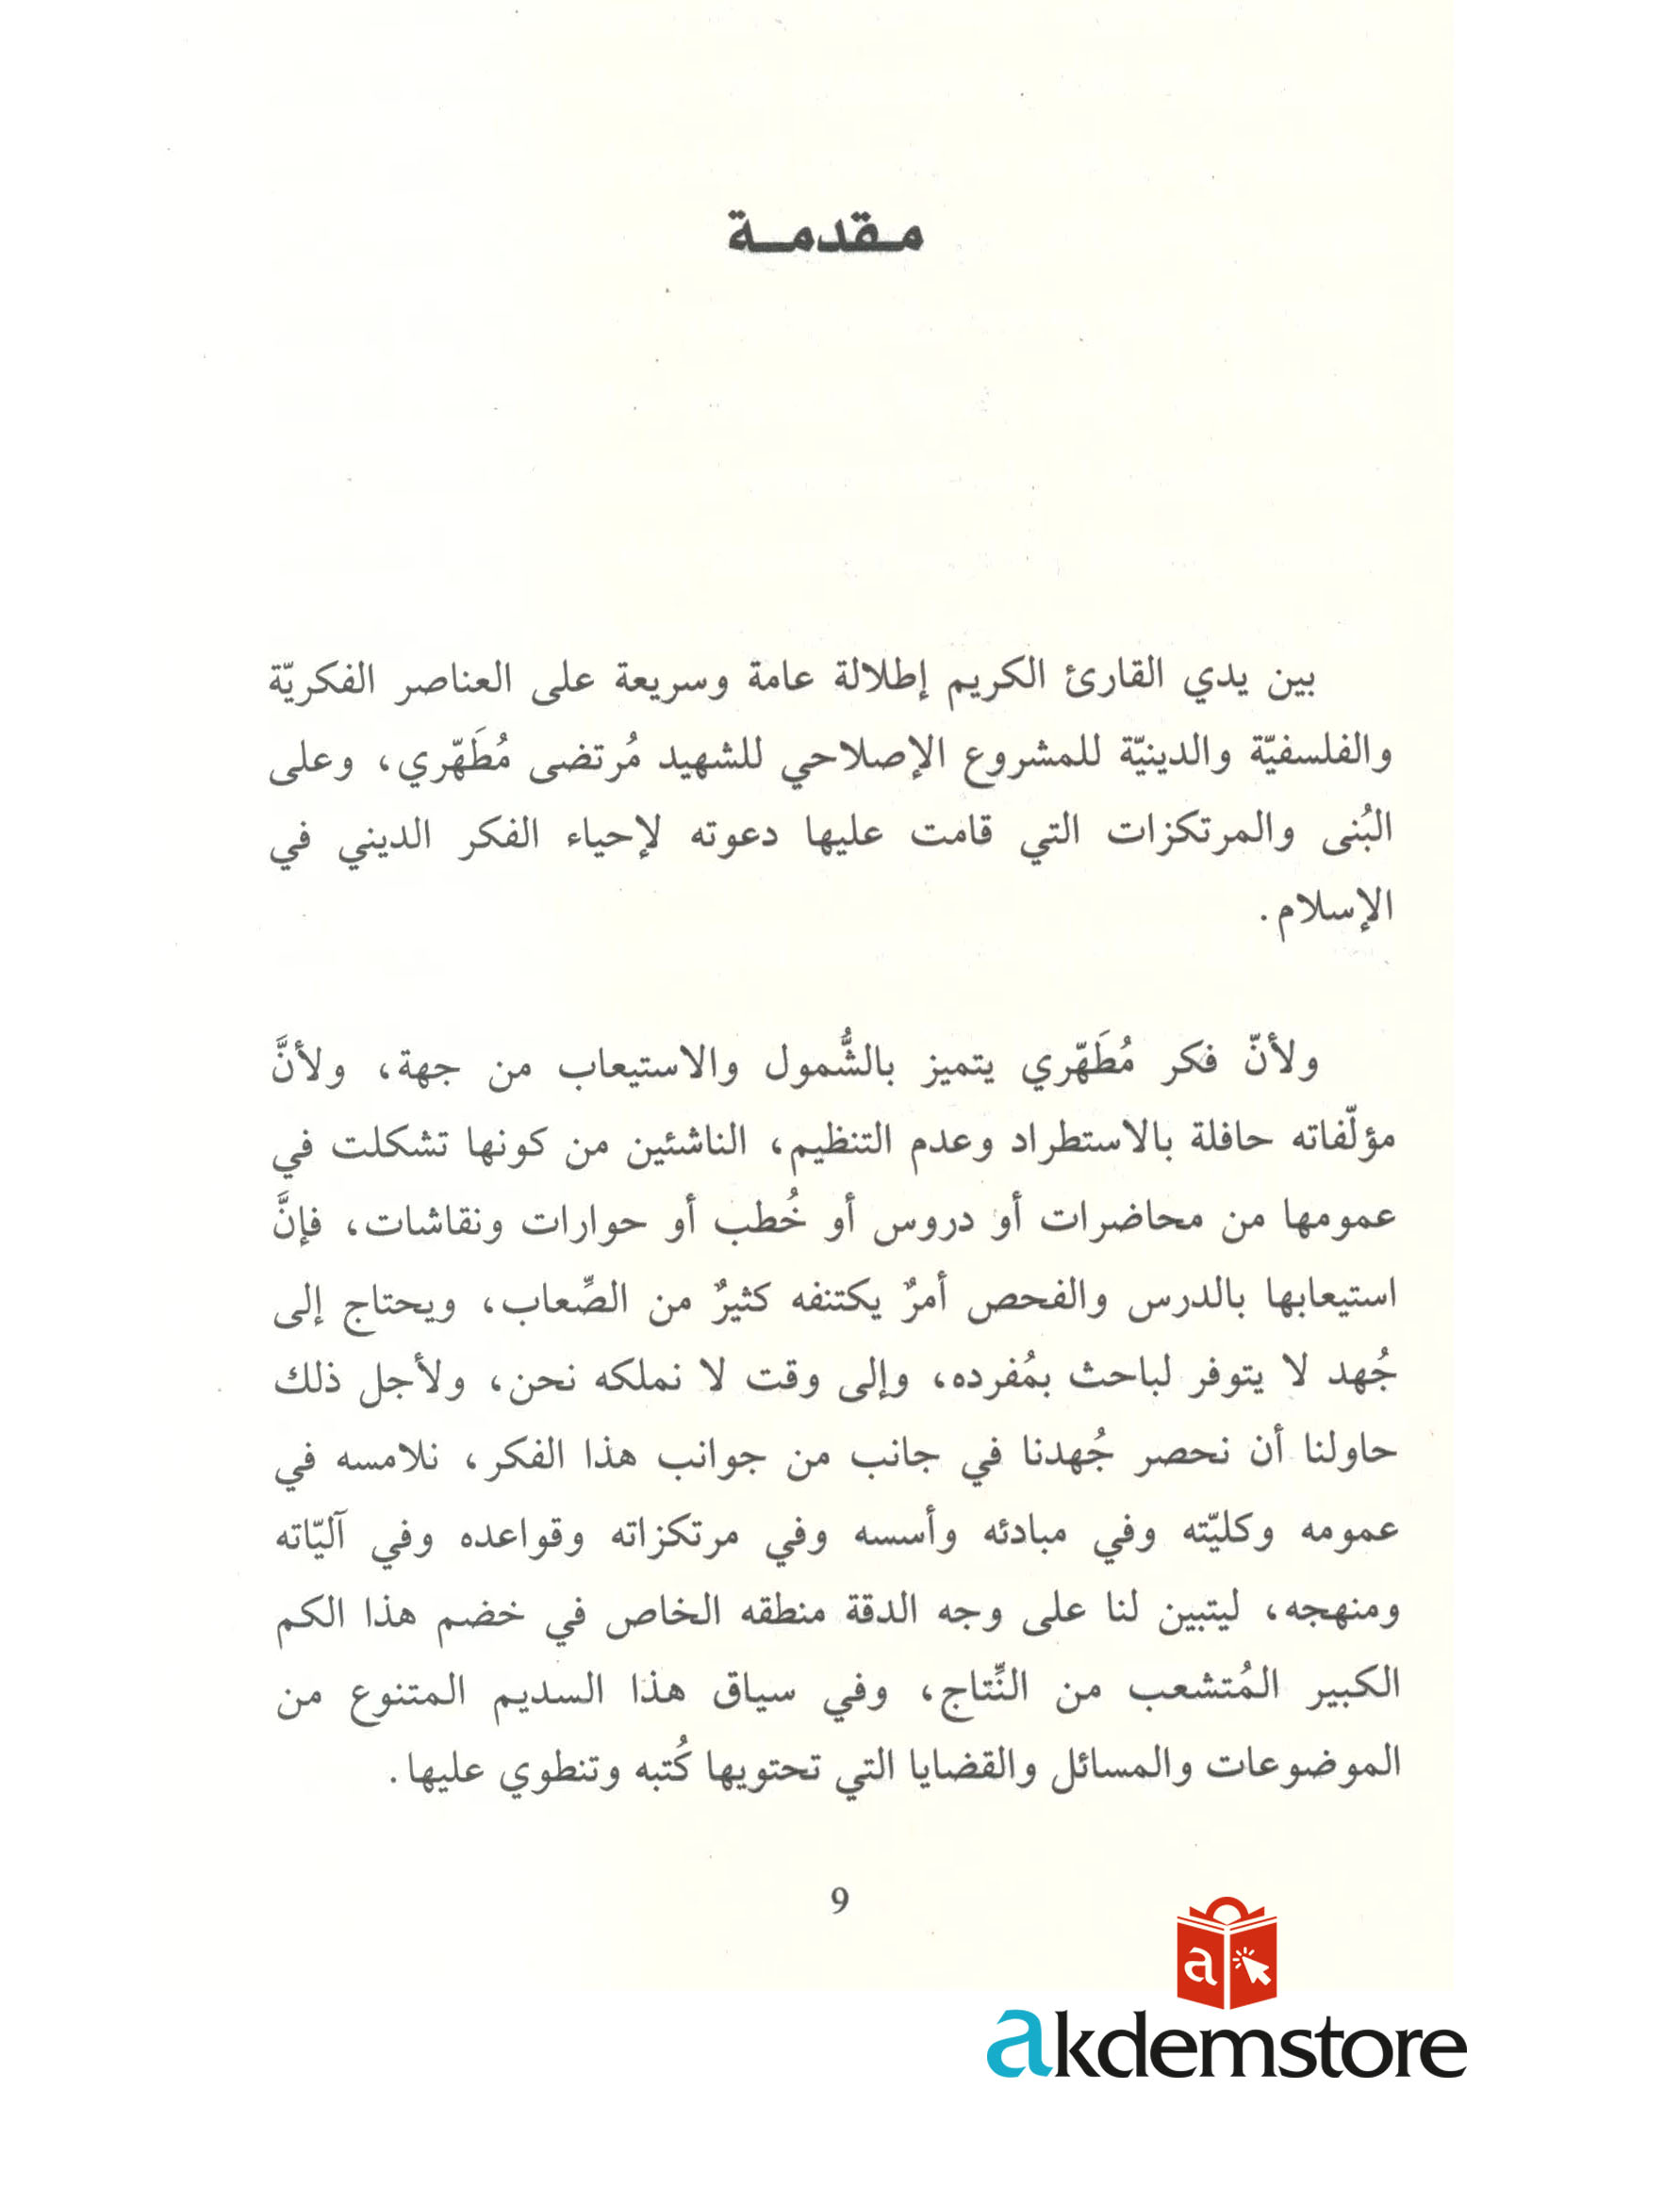 مقدمة
بين يدي القارئ الكريم إطلالة عامة وسريعة على العناصر الفكريّة
والفلسفيّة والدينيّة للمشروع الإصلاحي للشهيد مُرتضى مُطَهّري، وعلى
البُنى والمرتكزات التي قامت عليها دعوته لإحياء الفكر الديني في
الإسلام.
ولأنّ فكر مُطَهّري يتميز بالشُّمول والاستيعاب من جهة، ولأنَّ
مؤلّفاته حافلة بالاستطراد وعدم التنظيم، الناشئين من كونها تشكلت في
عمومها من محاضرات أو دروس أو خُطب أو حوارات ونقاشات، فإنَّ
استيعابها بالدرس والفحص أمرٌ يكتنفه كثيرٌ من الصِّعاب، ويحتاج إلى
جُهد لا يتوفر لباحث بمُفرده، وإلى وقت لا نملكه نحن، ولأجل ذلك
حاولنا أن نحصر جُهدنا في جانب من جوانب هذا الفكر، نلامسه في
عمومه وكليّته وفي مبادئه وأسسه وفي مرتكزاته وقواعده وفي آليّاته
ومنهجه، ليتبين لنا على وجه الدقة منطقه الخاص في خضم هذا الكم
الكبير المُتشعب من النِّتاج، وفي سياق هذا السديم المتنوع من
الموضوعات والمسائل والقضايا التي تحتويها كُتبه وتنطوي عليها.
9
a
akdemstore